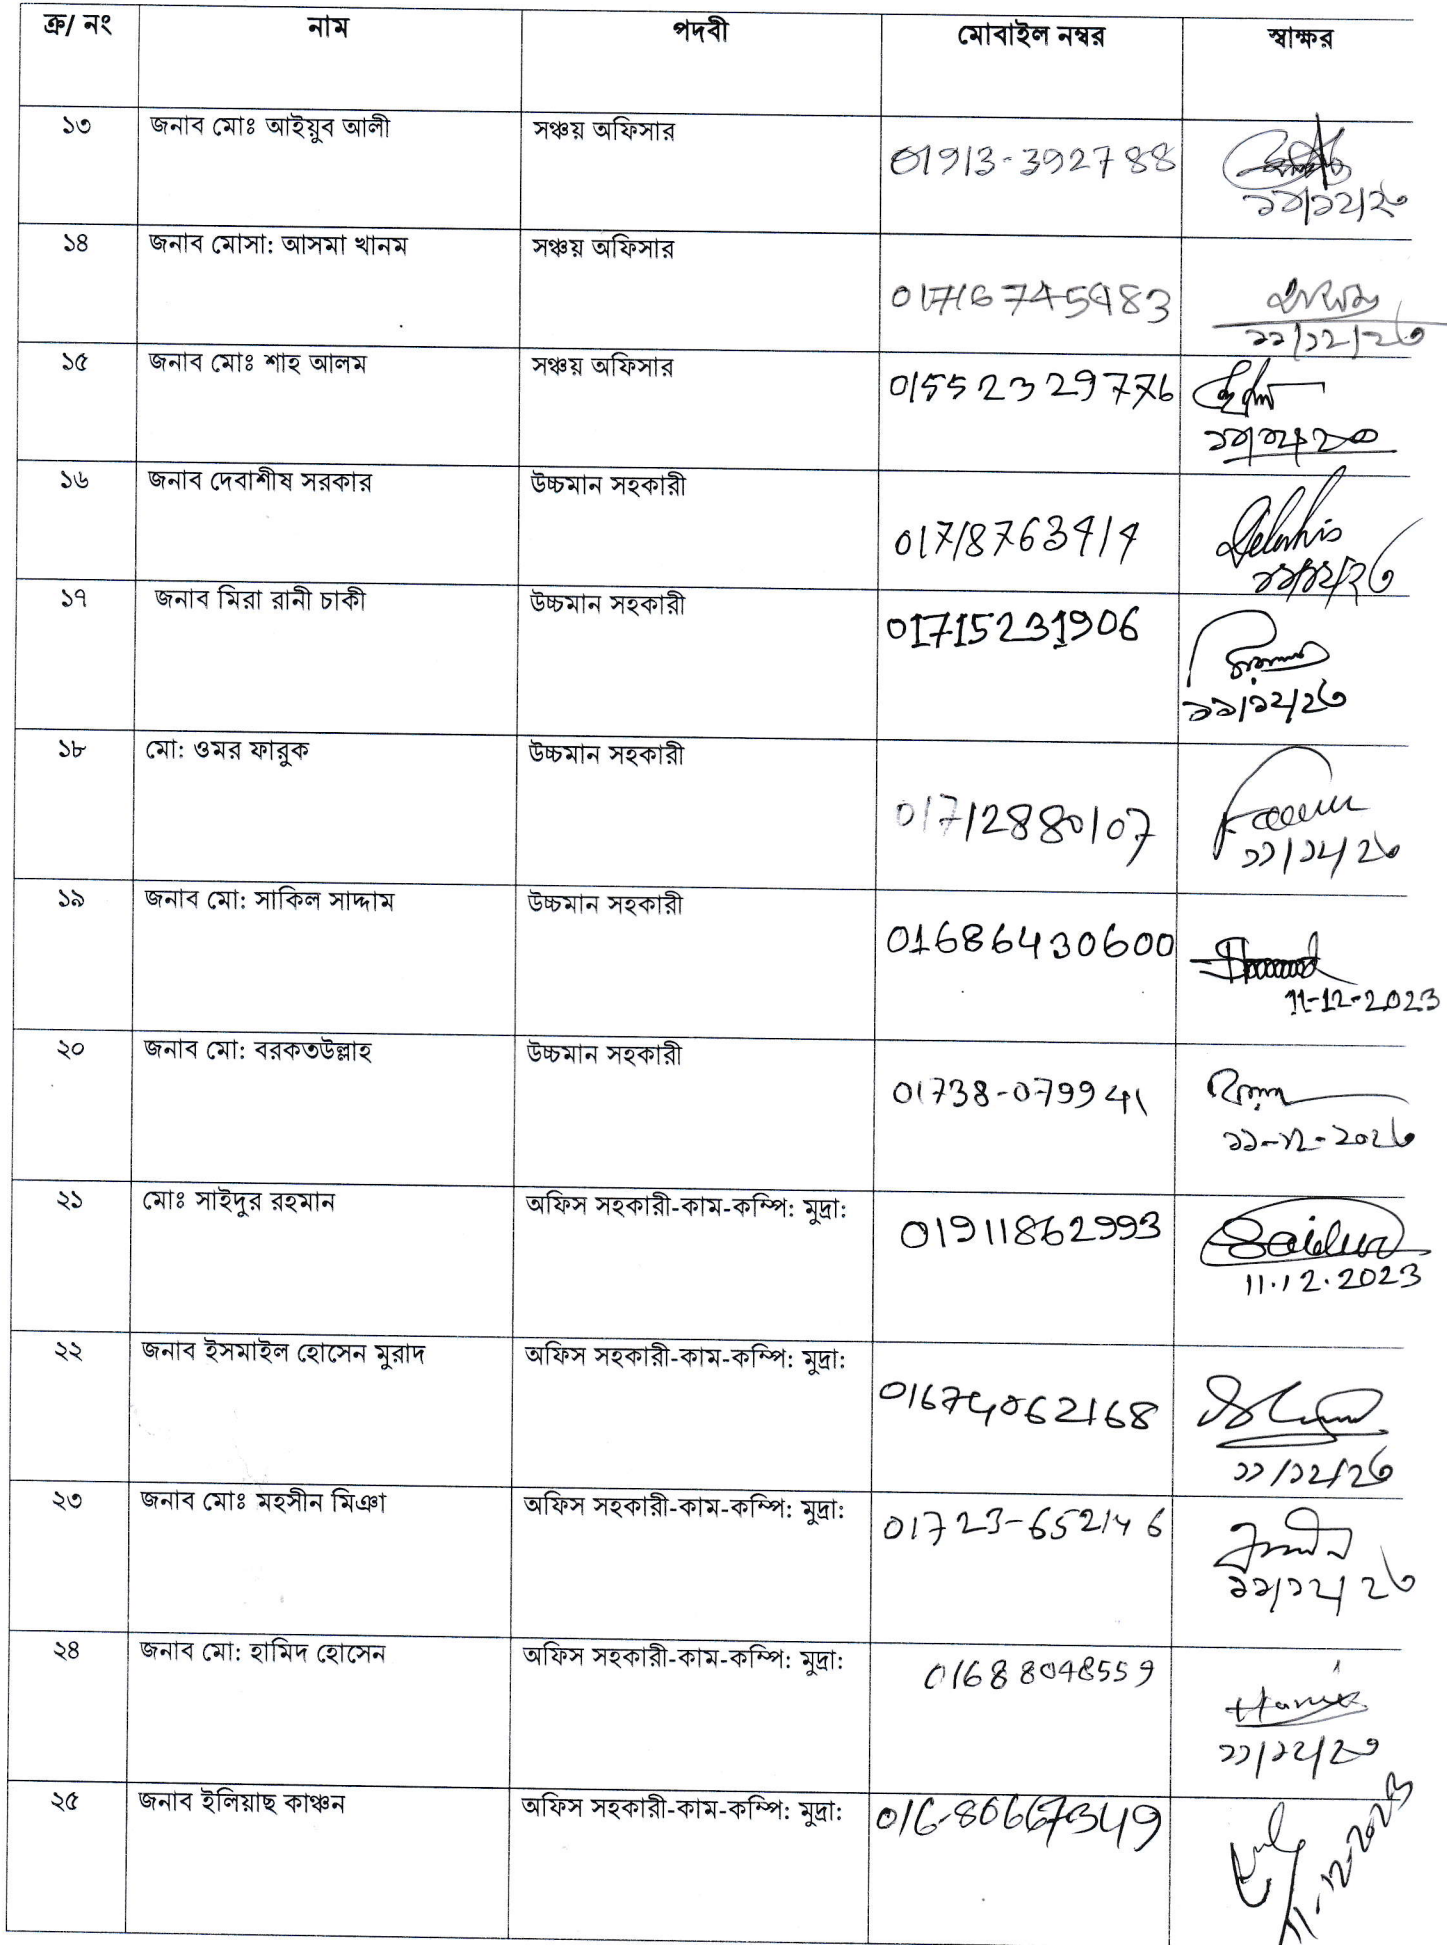 ক্র/ নং নাম পদবী মোবাইল নম্বর স্বাক্ষর
১৩ জনাব মোঃ আইয়ুব আলী সঞ্চয় অফিসার
01913-392788
১১/১২/২৩
১৪ জনাব মোসা: আসমা খানম সঞ্চয় অফিসার
01716745983
১১/১২/২৩
১৫ জনাব মোঃ শাহ আলম সঞ্চয় অফিসার 01552329776
১৬ জনাব দেবাশীষ সরকার উচ্চমান সহকারী
01718763414 Debashis
১১/১২/২৩
১৭ জনাব মিরা রানী চাকী উচ্চমান সহকারী 01715231906
১১/১২/২৩
১৮ মো: ওমর ফারুক উচ্চমান সহকারী
01712880107
১১/১২/২৩
১৯ জনাব মো: সাকিল সাদ্দাম উচ্চমান সহকারী
01686430600
11-12-2023
২০ জনাব মো: বরকতউল্লাহ উচ্চমান সহকারী
01738-079941
১১-১২-২০২৩
২১ মোঃ সাইদুর রহমান অফিস সহকারী-কাম-কম্পি: মুদ্রা:
01911862993 Saidur
11.12.2023
২২ জনাব ইসমাইল হোসেন মুরাদ অফিস সহকারী-কাম-কম্পি: মুদ্রা:
01674062168
১১/১২/২৩
২৩ জনাব মোঃ মহসীন মিঞা অফিস সহকারী-কাম-কম্পি: মুদ্রা:
01723-652146
১১/১২/২৩
২৪ জনাব মো: হামিদ হোসেন অফিস সহকারী-কাম-কম্পি: মুদ্রা:
01688048559
Hamid
১১/১২/২৩
২৫ জনাব ইলিয়াছ কাঞ্চন অফিস সহকারী-কাম-কম্পি: মুদ্রা: 016-80667349
11-12-2023